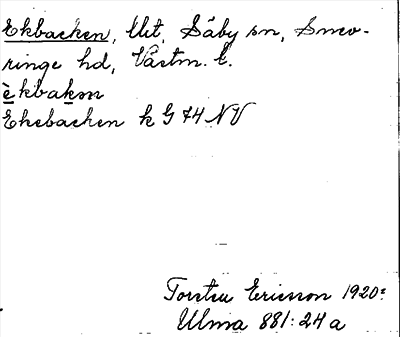 Ekbacken, Utt, Säby sn, Snev-
ringe hd, Västm. l.
èkbakən
Ekebacken k G 74 NV
Torsten Ericsson 1920:
Ulma 881:24 a